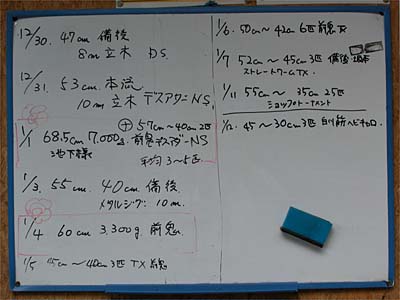 12/30. 47cm 備後
8m 立木 DS.
12/31. 53cm. 本流
10m 立木 デスアダーNS.
⊕ 57cm〜40cm 2匹
1/1 68.5cm 7,000g. 前鬼 デスアダーNS
池下様
平均 3〜5匹
1/3. 55cm. 40cm 備後
メタルジグ. 10m.
1/4 60cm 3,300g. 前鬼.
1/5 45cm 〜 40cm 3匹 TX 前鬼
1/6. 50cm 〜 42cm 6匹 前鬼 TX
1/7 52cm 〜 45cm 3匹 備後
ストレートワーム TX.
1/11 55cm 〜 35cm 25匹
ショップトーナメント
1/12. 45 〜 30cm 3匹 白川筋 ヘビキャロ